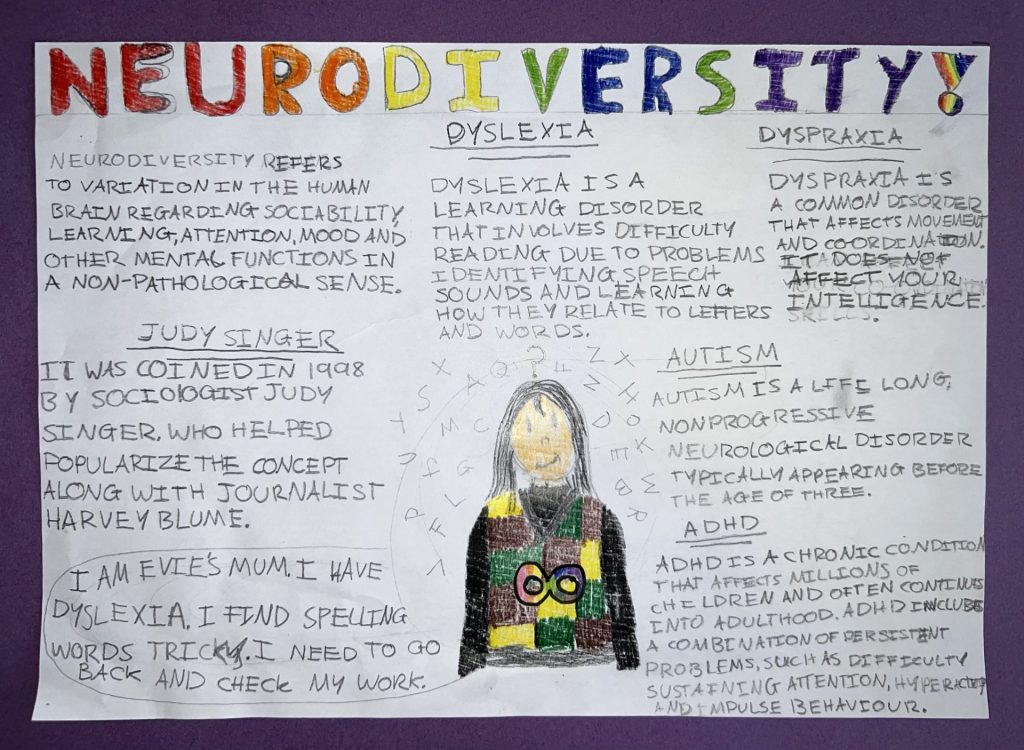 NEURODIVERSITY!
NEURODIVERSITY REFERS
TO VARIATION IN THE HUMAN
BRAIN REGARDING SOCIABILITY
LEARNING, ATTENTION, MOOD AND
OTHER MENTAL FUNCTIONS IN
A NON-PATHOLOGICAL SENSE.
JUDY SINGER
IT WAS COINED IN 1998
BY SOCIOLOGIST JUDY
SINGER, WHO HELPED
POPULARIZE THE CONCEPT
ALONG WITH JOURNALIST
HARVEY BLUME.
I AM EVIE'S MUM. I HAVE
DYSLEXIA. I FIND SPELLING
WORDS TRICKY. I NEED TO GO
BACK AND CHECK MY WORK.
DYSLEXIA
DYSLEXIA IS A
LEARNING DISORDER
THAT INVOLVES DIFFICULTY
READING DUE TO PROBLEMS
IDENTIFYING SPEECH
SOUNDS AND LEARNING
HOW THEY RELATE TO LETTERS
AND WORDS.
DYSPRAXIA
DYSPRAXIA IS
A COMMON DISORDER
THAT AFFECTS MOVEMENT
AND CO-ORDINATION.
IT DOES NOT
AFFECT YOUR
INTELLIGENCE.
AUTISM
AUTISM IS A LIFE LONG,
NONPROGRESSIVE
NEUROLOGICAL DISORDER
TYPICALLY APPEARING BEFORE
THE AGE OF THREE.
ADHD
ADHD IS A CHRONIC CONDITION
THAT AFFECTS MILLIONS OF
CHILDREN AND OFTEN CONTINUES
INTO ADULTHOOD. ADHD INCLUDES
A COMBINATION OF PERSISTENT
PROBLEMS, SUCH AS DIFFICULTY
SUSTAINING ATTENTION, HYPERACTIVITY
AND IMPULSE BEHAVIOUR.